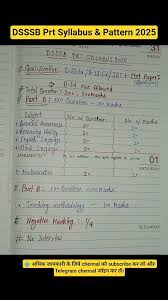 DSSSB Prt Syllabus & Pattern 2025
31
DSSSB PRT SYLLABUS 2025
* Qualification:
B.Ed Not Allowed
* Total Question: 200 - 200 Marks
* Part A: 100 Question - 100 Marks
Subject No. of Question Marks
General Awareness 20 20
Reasoning Ability 20 20
English Language 20 20
Hindi Language 20 20
SATURDAY
01
Mathematics 20 20
* Part B: 100 Question - 100 Marks
Teaching Methodology - 100 Marks
* Negative Marking: 1/4
* No Interview
अधिक जानकारी के लिये channel को subscribe कर लो और
Telegram channel जॉइन कर लें।